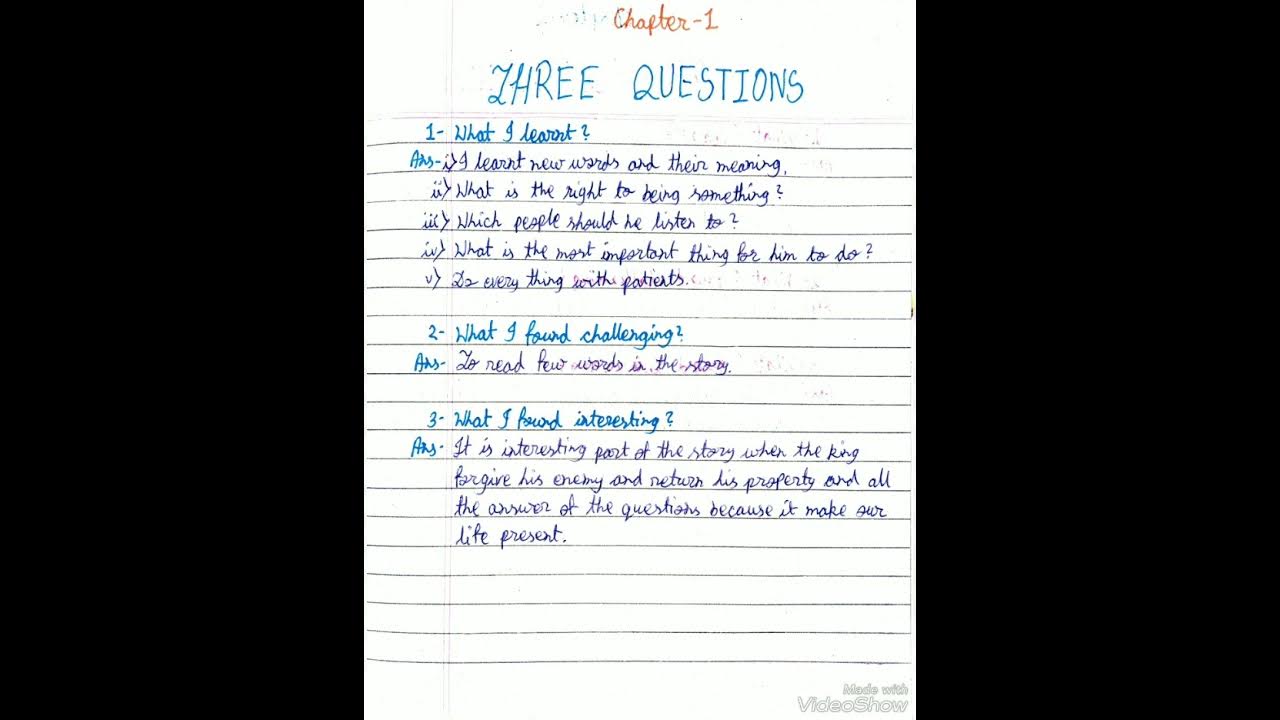 Chapter-1
THREE QUESTIONS
1- What I learnt?
Ans- i) I learnt new words and their meaning.
ii) What is the right to being something?
iii) Which people should he listen to?
iv) What is the most important thing for him to do?
v) Do every thing with patients.
2- What I found challenging?
Ans- To read few words in the story.
3- What I found interesting?
Ans- It is interesting part of the story when the king
forgive his enemy and return his property and all
the answer of the questions because it make our
life present.
Made with
VideoShow